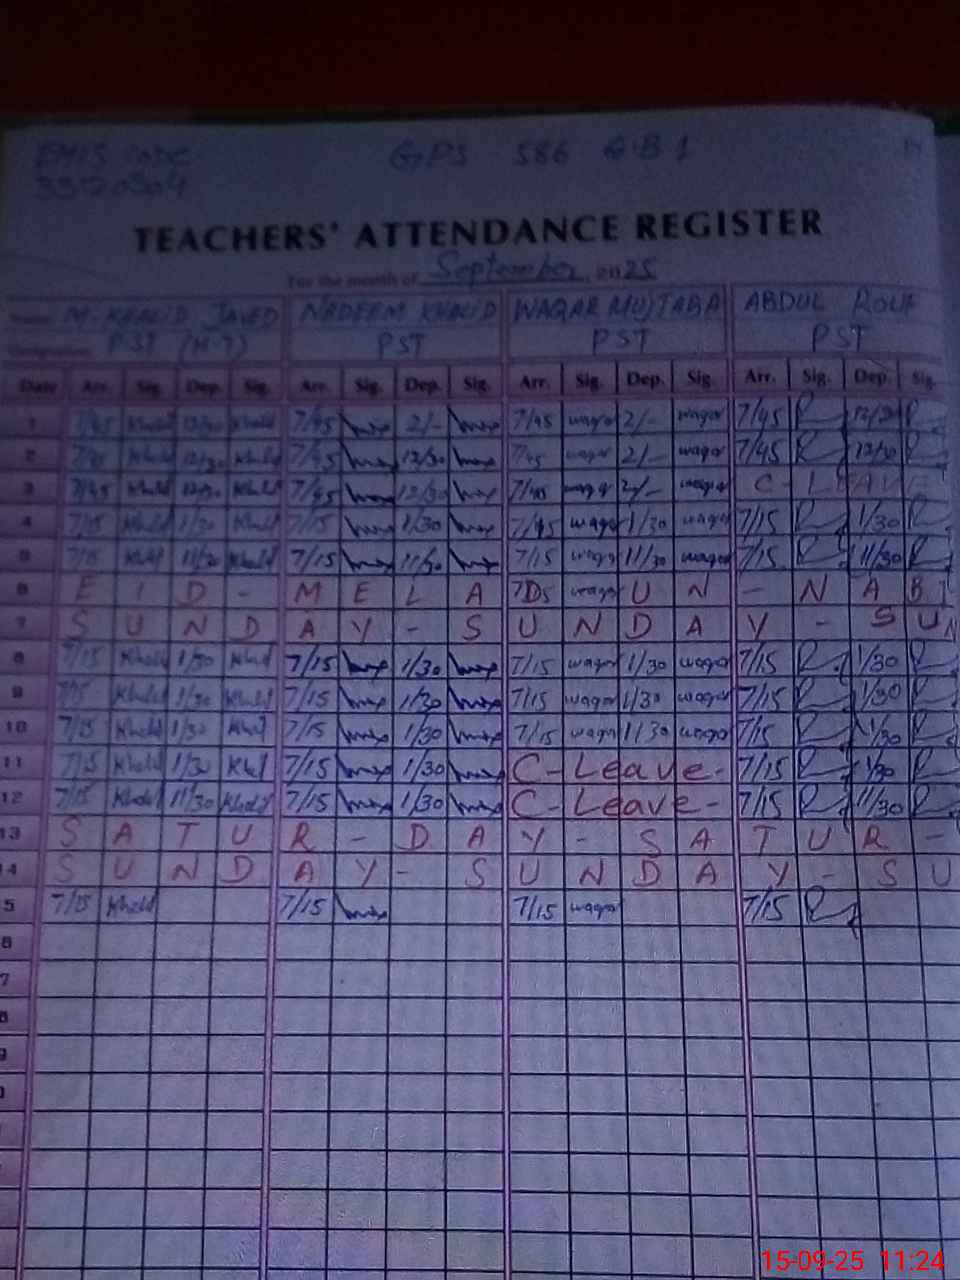 EMIS Code
GPS 586 GB 1
TEACHERS' ATTENDANCE REGISTER
For the month of September, 2025
M. KHALID JAVED NADEEM KHALID WAQAR MUJTABA ABDUL ROUF
PST (H-T) PST PST PST
Date Arr. Sig. Dep. Sig. Arr. Sig. Dep. Sig. Arr. Sig. Dep. Sig. Arr. Sig. Dep. Sig.
1 7/45 Khalid 12/30 Khalid 7/45 2/- 7/45 waqar 2/- waqar 7/45 12/30
2 7/45 Khalid 12/30 Khalid 7/45 12/30 7/45 waqar 2/- waqar 7/45 12/30
3 7/45 Khalid 12/30 Khalid 7/45 12/30 7/45 waqar 2/- waqar C - LEAVE
4 7/15 Khalid 1/30 Khalid 7/15 1/30 7/45 waqar 1/30 waqar 7/15 1/30
5 7/15 Khalid 11/30 Khalid 7/15 11/30 7/15 waqar 11/30 waqar 7/15 11/30
6 E I D - M E L A D waqar U N - N A B
7 S U N D A Y - S U N D A Y - S U N
8 7/15 Khalid 1/30 Khalid 7/15 1/30 7/15 waqar 1/30 waqar 7/15 1/30
9 7/15 Khalid 1/30 Khalid 7/15 1/30 7/15 waqar 1/30 waqar 7/15 1/30
10 7/15 Khalid 1/30 Khalid 7/15 1/30 7/15 waqar 1/30 waqar 7/15 1/30
11 7/15 Khalid 1/30 Khalid 7/15 1/30 C - Leave - 7/15 1/30
12 7/15 Khalid 11/30 Khalid 7/15 1/30 C - Leave - 7/15 11/30
13 S A T U R - D A Y - S A T U R -
14 S U N D A Y - S U N D A Y - S U
5 7/15 Khalid 7/15 7/15 waqar 7/15
6
7
8
9
15-09-25 11:24